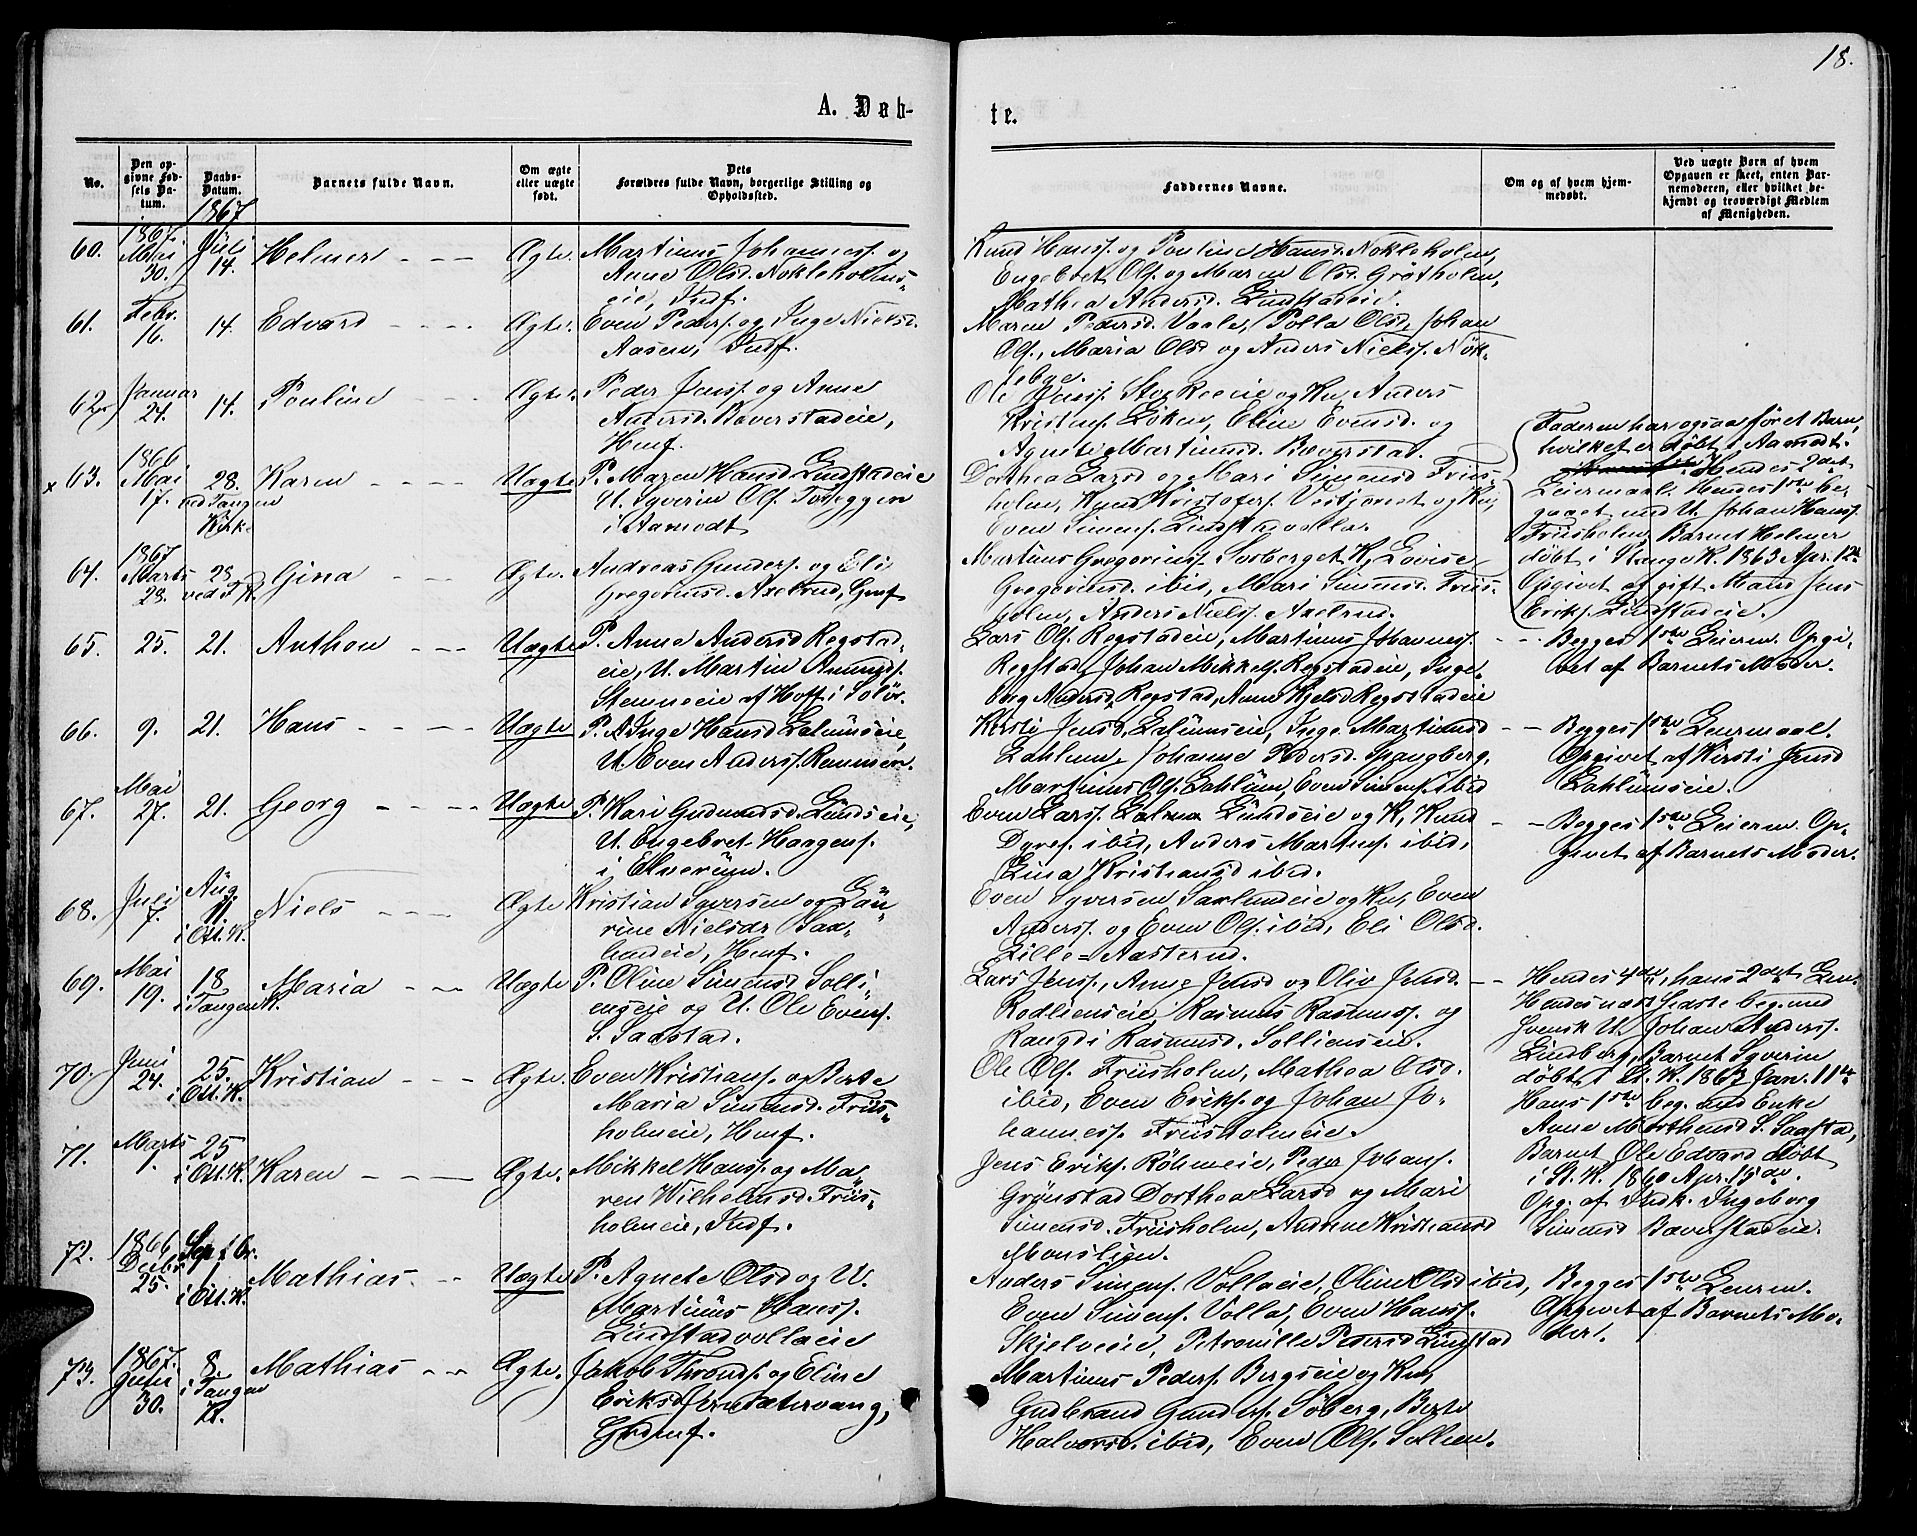 18.
A. Døb-
te.
No.
Den op-
givne Fød-
sels Da-
tum.
Daabs-
Datum.
Barnets fulde Navn.
Om ægte
eller uægte
født.
Dets
Forældres fulde Navn, borgerlige Stilling og
Opholdssted.
Faddernes Navne.
Om og af hvem hjem-
medøbt.
Ved uægte Børn af hvem
Opgaven er skeet, enten Bar-
nemoderen, eller hvilket be-
kjendt og troværdigt Medlem
af Menigheden.
1867
60.
1867.
Mai
30.
Juli
14.
Helmer
Ægte.
Martinus Johanness. og
Anne Olsd. Nokleholms-
eie, Indf.
Knud Hanss. og Pouline Hansd. Nokleholm,
Engebret Ols. og Maren Olsd. Grötholm,
Mathea Andersd. Lindstadeie.
61.
Febr.
16.
14.
Edvard
Ægte.
Even Peders. og Inge Nielsd.
Aasen, Indf.
Maren Pedersd. Vaale, Polla Olsd., Johan
Ols., Maria Olsd og Anders Nielss. Nök-
lebye.
62.
Januar
24.
14.
Pouline
Ægte.
Peder Jenss. og Anne
Andersd. Bæverstadeie,
Hmf.
Ole Jenss. Sterkeeie og Kn, Anders
Kristens. Löken, Eline Evensd. og
Agnete Martinusd. Bæverstad.
x 63.
1866
Mai
17.
28.
ved Tangen
Kirke
Karen
Uægte
P. Maren Hansd Lindstadeie
U. Syverin Ols. Toseggen
i Aamodt
Dorthea Larsd og Mari Simensd Friis-
holm, Knud Kristofers. Vestjordet og Kn,
Even Simens. Lindstadvolla.
Faderen har ogsaa föret Barn,
hvilket er døbt i Aamodt.
Hendes 2det
Leiermaal. Hendes 1ste be-
gaaet med U. Johan Hanss.
Friisholm, Barnet Helmer
døbt i Stange K. 1863 Apr. 12te
Opgivet af gift Mand Jens
Eriks. Lindstadeie.
64.
1867
Marts
28.
28.
ved T. K.
Gina
Ægte.
Andreas Gunders. og Eli
Gregoriusd. Axelrud, Grf
Martinus Gregoriuss. Sorberget K, Lovise
Gregoriusd. ibid, Mari Simensd. Friis-
holm, Anders Niels. Axelrud.
65.
25.
21.
Anthon
Uægte
P. Anne Andersd Regstad-
eie, U. Martin Amunds.
Stenneeie af Hoff i Solör.
Lars Ols. Regstadeie, Martinus Johanness.
Regstad, Johan Mikkels. Regstadeie, Inge-
borg Andersd. Regstad, Anne Kjelsd Regstadeie
Begges 1ste Leierm. Opgi-
vet af Barnets Moder.
66.
9.
21.
Hans
Uægte
P. Inge Hansd Lalumseie,
U. Even Anderss. Rommen.
Kirsti Jensd. Lalumseie, Inge Martinusd
Lahlum, Johanne Pedersd. Spangberg,
Martinus Ols. Lahlum, Even Simens. ibid
Begges 1ste Leiermaal.
Opgivet af Kirsti Jensd
Lahlumseie.
67.
Mai
27.
21.
Georg
Uægte
P. Kari Gudmundsd. Lundseie,
U. Engebret Haagens.
i Elverum.
Even Larss. Lalum Lundseie og K, Knud
Dyres. ibid, Anders Martins. ibid,
Lina Kristiansd ibid.
Begges 1ste Leierm. Op-
givet af Barnets Moder.
68.
Juli
7.
Aug.
11.
i Ott. K.
Niels
Ægte
Kristian Syversen og Lau-
rine Nielsdr Sax-
lundeie, Hmf.
Even Syversen Saxlundeie og Kn, Even
Anderss. og Even Ols. ibid, Eli Olsd.
Lille-Aasterud.
69.
Mai
19.
18
i Tangen K.
Maria
Uægte
P. Oline Simensd Solli
enseie og U. Ole Evens.
S. Saxstad.
Lars Jenss., Anne Jensd og Oliv Jensd.
Rodlienseie, Rasmus Rasmuss. og
Rangdi Rasmusd. Sollienseie.
Hendes 4de, hans 2det Lm.
Hendes næst sidste beg. med
Svensk U. Johan Anderss.
Lindberg, Barnet Syverin
døbt i St. K. 1863 Jan. 11te
Hans 1ste beg. med Enke
Anne Morthensd S. Saxstad,
Barnet Ole Edvard døbt
i St. K. 1860 Apr. 15de.
Opg. af Indk. Ingeborg
Simensd Bæverstadeie.
70.
Juni
24.
25.
i Ott. K.
Kristian
Ægte.
Even Kristians. og Berte
Maria Simensd. Friis-
holmeie, Hmf.
Ole Ols. Friisholm, Mathea Olsd.
ibid, Even Eriks. og Johan Jo-
hanness. Friisholmeie.
71.
Marts
1.
25
i Ott. K.
Karen
Ægte.
Mikkel Hanss. og Ma-
ren Wilhelmsd. Friis-
holmeie, Indf.
Jens Eriks. Röhmeie, Peder Johans.
Grönstad Dorthea Larsd og Mari
Simensd. Friisholm, Andrine Kristiansd
Monslien.
72.
1866
Decbr
25.
Septbr.
1
i Ott. K.
Mathias.
Uægte
P. Agnete Olsd og U.
Martinus Hanss.
Lindstadvollaeie
Anders Simens. Vollaeie, Oline Olsd ibid,
Even Simens. Volla, Even Hanss.
Skjelveie, Petronille Pedersd Lindstad
Begges 1ste Leierm.
Opgivet af Barnets Mo-
der.
73.
1867.
Juni
30.
8.
i Tangen
K.
Mathias
Ægte.
Jakob Thronds. og Eline
Eriksd Jernsætervang,
Grdmf.
Martinus Peders. Bergseie og Kn,
Gudbrand Gunders. Söberg, Berte
Halvorsd. ibid, Even Ols. Sollien.